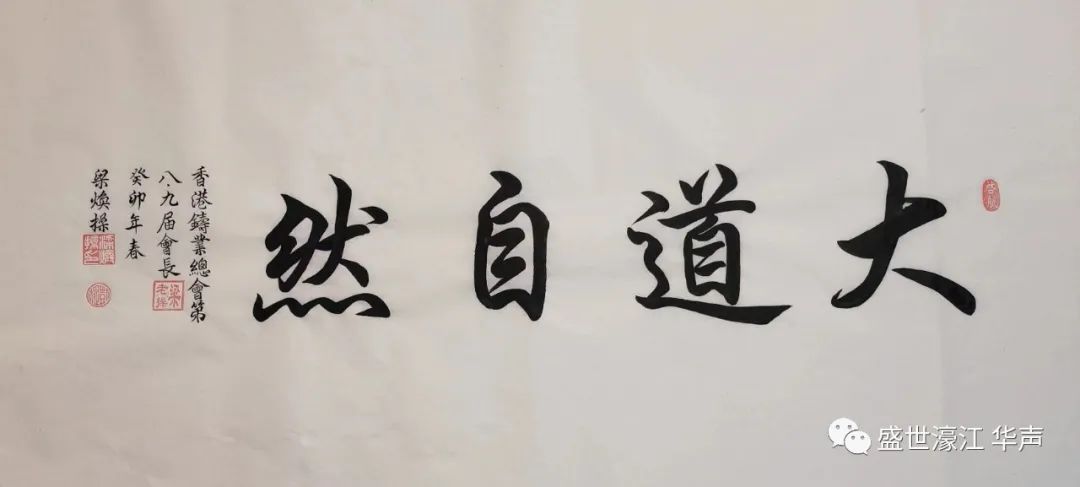 大道自然
香港鑄業總會第
八·九届會長
癸卯年春
梁煥操
盛世濠江 华声